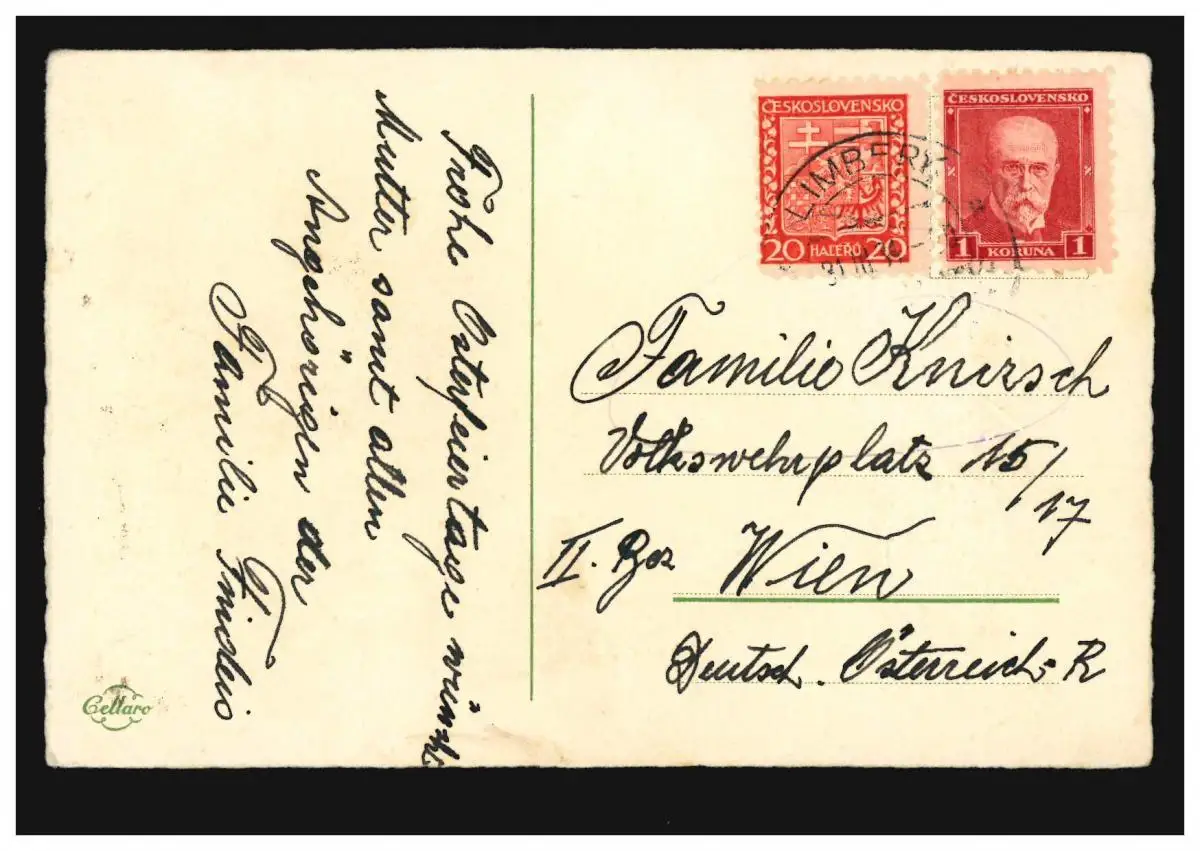 Frohe Osterfeiertage wünscht
Mutter samt allen
Angehörigen der
Familie
ČESKOSLOVENSKO
20 HALÉŘŮ 20
ČESKOSLOVENSKO
1 KORUNA 1
LIMBERK
31.III
Familie Knirsch
Volkswehrplatz 15/
17
II. Bez Wien
Deutsch. Österreich-R
Cellaro